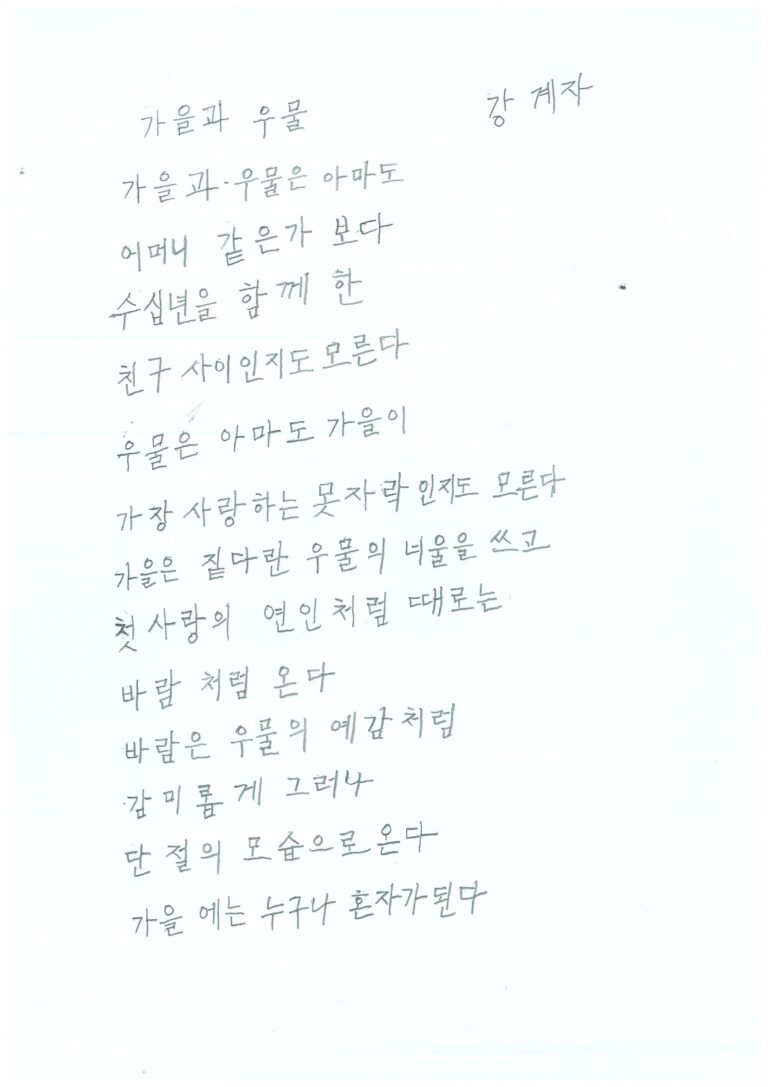 가을과 우물 강 계자
가을과·우물은 아마도
어머니 같은가 보다
수십년을 함께 한
친구 사이인지도 모른다
우물은 아마도 가을이
가장 사랑하는 못자락인지도 모른다
가을은 짙다란 우물의 너울을 쓰고
첫사랑의 연인처럼 때로는
바람 처럼 온다
바람은 우물의 예감처럼
감미롭게 그러나
단절의 모습으로온다
가을 에는 누구나 혼자가된다